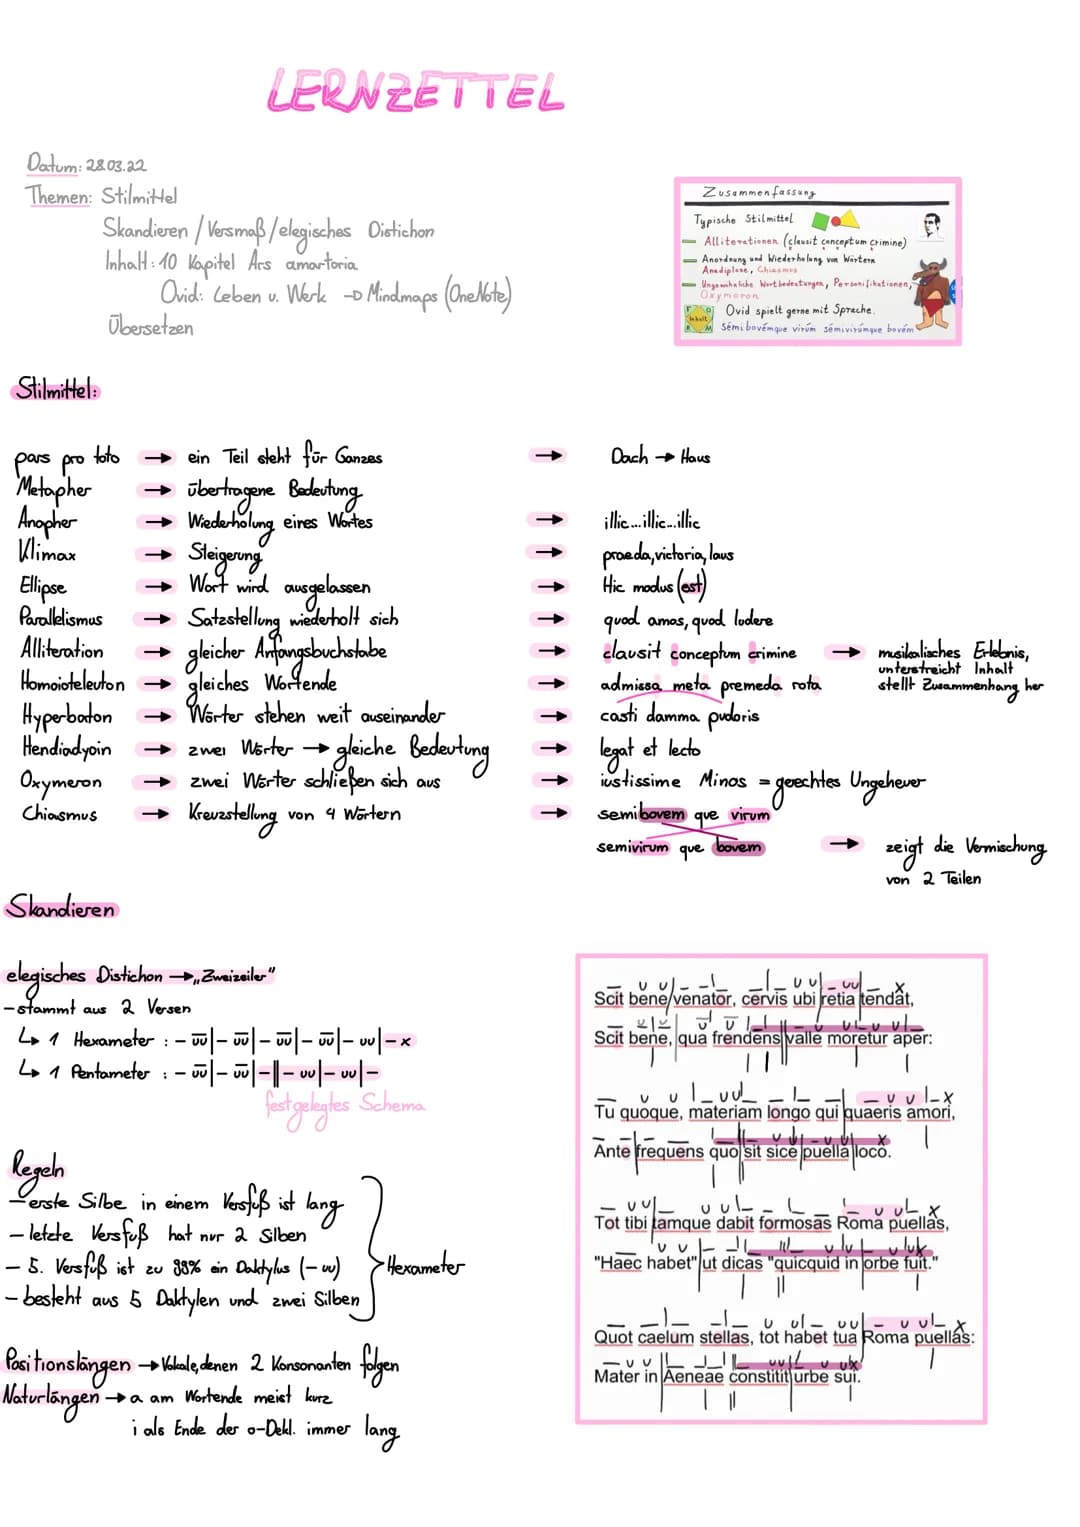 LERNZETTEL
Datum: 28.03.22
Themen: Stilmittel
Skandieren / Versmaß / elegisches Distichon
Inhalt: 10 Kapitel Ars amartoria
Ovid: Leben u. Werk → Mindmaps (OneNote)
Übersetzen
Zusammenfassung
Typische Stilmittel
Alliterationen (clausit conceptum crimine)
Anordnung und Wiederholung von Wörtern
Anadiplose, Chiasmus
Ungewöhnliche Wortbedeutungen, Personifikationen,
Oxymoron
Inhalt
Ovid spielt gerne mit Sprache.
Sémibovémque virúm sémivirúmque bovém
Stilmittel:
pars pro toto → ein Teil steht für Ganzes → Dach → Haus
Metapher → übertragene Bedeutung
Anapher → Wiederholung eines Wortes → illic...illic...illic
Klimax → Steigerung → praeda, victoria, laus
Ellipse → Wort wird ausgelassen → Hic modus (est)
Parallelismus → Satzstellung wiederholt sich → quod amas, quod ludere
Alliteration → gleicher Anfangsbuchstabe → clausit conceptum crimine → musikalisches Erlebnis,
unterstreicht Inhalt
stellt Zusammenhang her
Homoioteleuton → gleiches Wortende → admissa meta premeda rota
Hyperbaton → Wörter stehen weit auseinander → casti damma pudoris
Hendiadyoin → zwei Wörter → gleiche Bedeutung → legat et lecto
Oxymeron → zwei Wörter schließen sich aus → iustissime Minos = gerechtes Ungeheuer
Chiasmus → Kreuzstellung von 4 Wörtern → semibovem que virum
semivirum que bovem → zeigt die Vermischung
von 2 Teilen
Skandieren
elegisches Distichon → „Zweizeiler"
- stammt aus 2 Versen
↳ 1 Hexameter : – ῡῡ | – ῡῡ | – ῡῡ | – ῡῡ | – υυ | – x
↳ 1 Pentameter : – ῡῡ | – ῡῡ | – || – υυ | – υυ | –
festgelegtes Schema
Regeln
- erste Silbe in einem Versfuß ist lang
- letzte Versfuß hat nur 2 Silben
- 5. Versfuß ist zu 99% ein Daktylus (– υυ)
- besteht aus 5 Daktylen und zwei Silben
Hexameter
Positionslängen → Vokale, denen 2 Konsonanten folgen
Naturlängen → a am Wortende meist kurz
i als Ende der o-Dekl. immer lang
Scit bene venator, cervis ubi retia tendat,
Scit bene, qua frendens valle moretur aper:
Tu quoque, materiam longo qui quaeris amori,
Ante frequens quo sit sice puella loco.
Tot tibi tamque dabit formosas Roma puellas,
"Haec habet" ut dicas "quicquid in orbe fuit."
Quot caelum stellas, tot habet tua Roma puellas:
Mater in Aeneae constitit urbe sui.